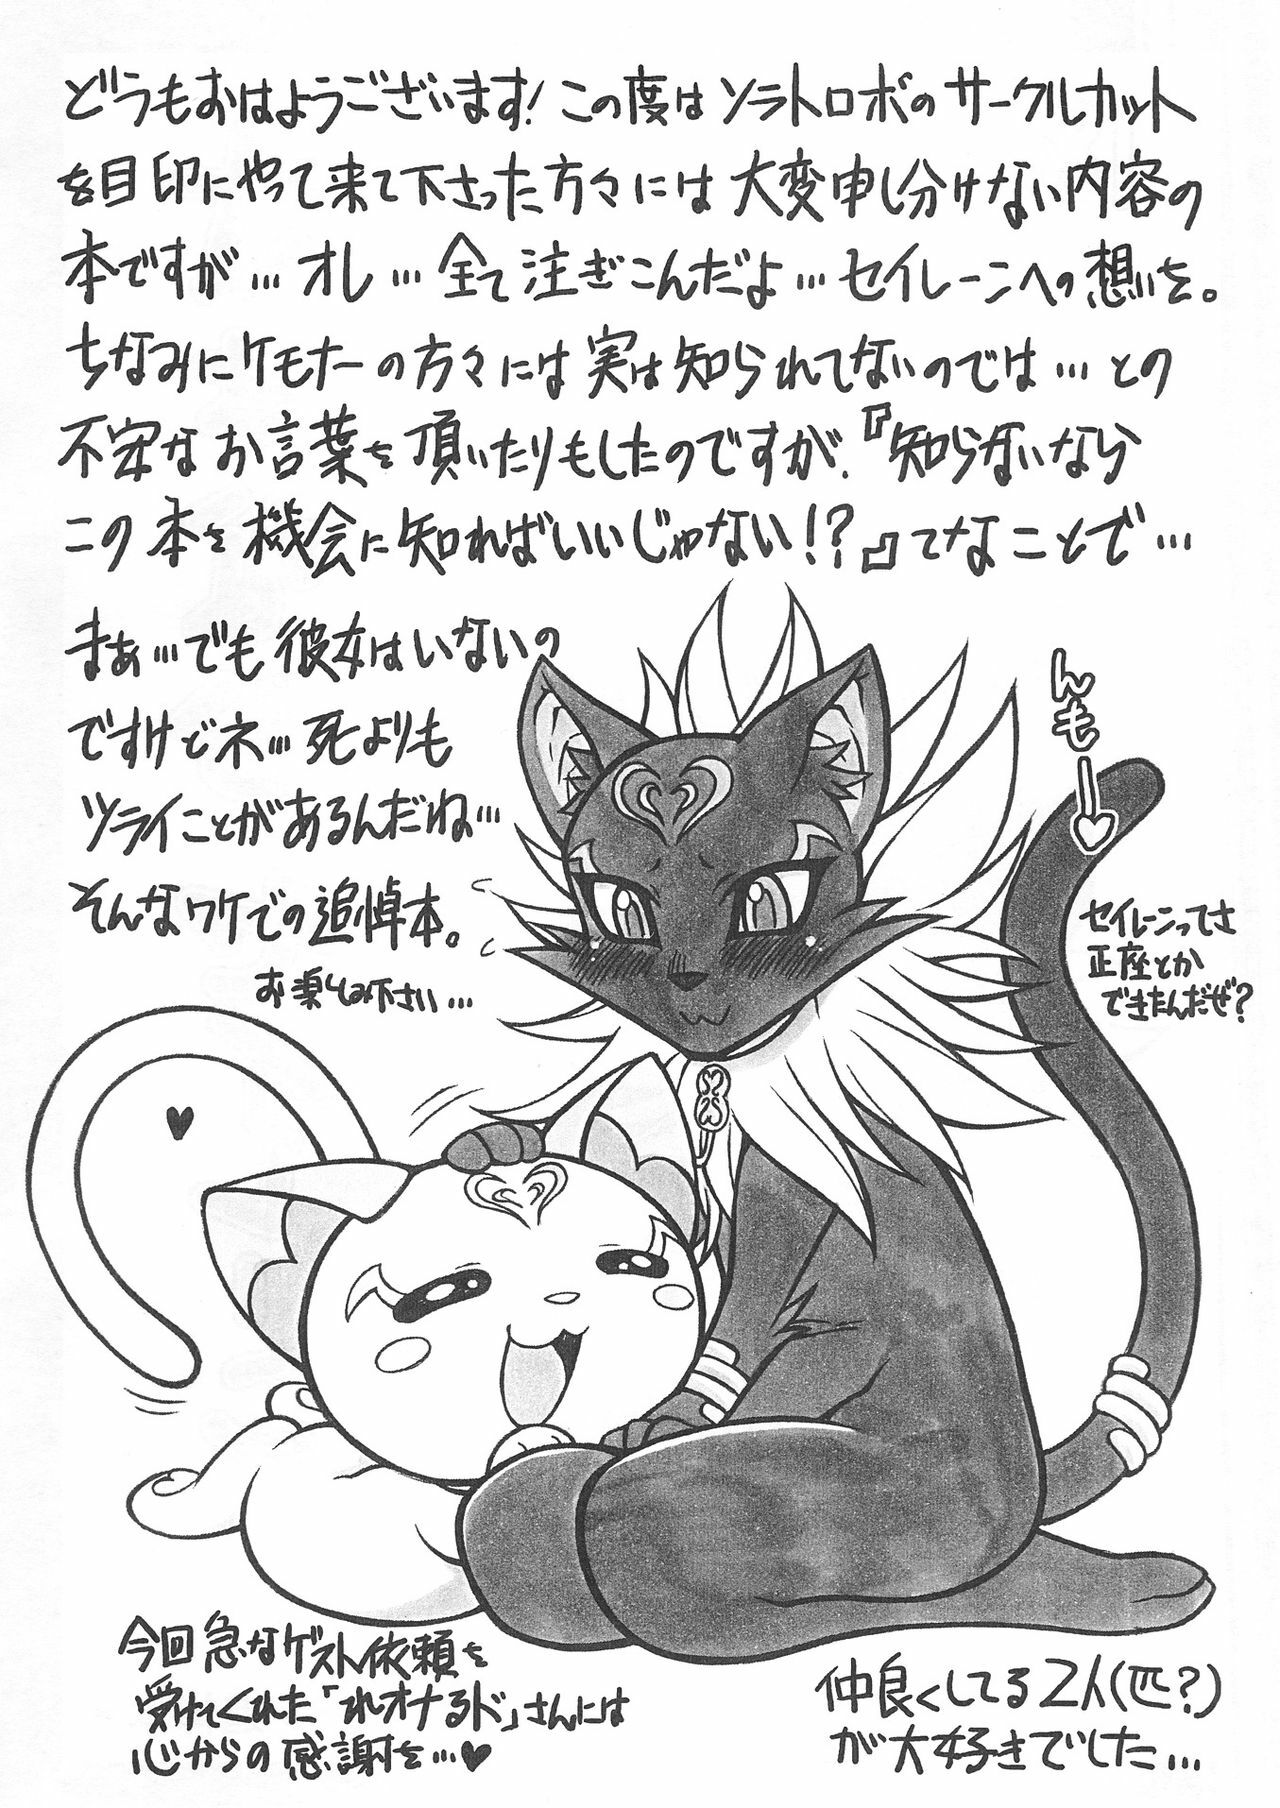 どうもおはようございます! この度はソラトロボのサークルカット
を目印にやって来て下さった方々には大変申し分けない内容の
本ですが…オレ…全て注ぎこんだよ…セイレーンへの想いを。
ちなみにケモナーの方々には実は知られてないのでは…との
不安なお言葉を頂いたりもしたのですが、『知らないなら
この本を機会に知ればいいじゃない!?』てなことで…
まぁ…でも彼女はいないの
ですけどネ…死よりも
ツライことがあるんだね…
そんなワケでの追悼本。
お楽しみ下さい…
んもー♡
セイレーンってさ
正座とか
できたんだぜ?
♥
今回急なゲスト依頼を
受けてくれた「れオナるド」さんには
心からの感謝を…♥
仲良くしてる2人(匹?)
が大好きでした…